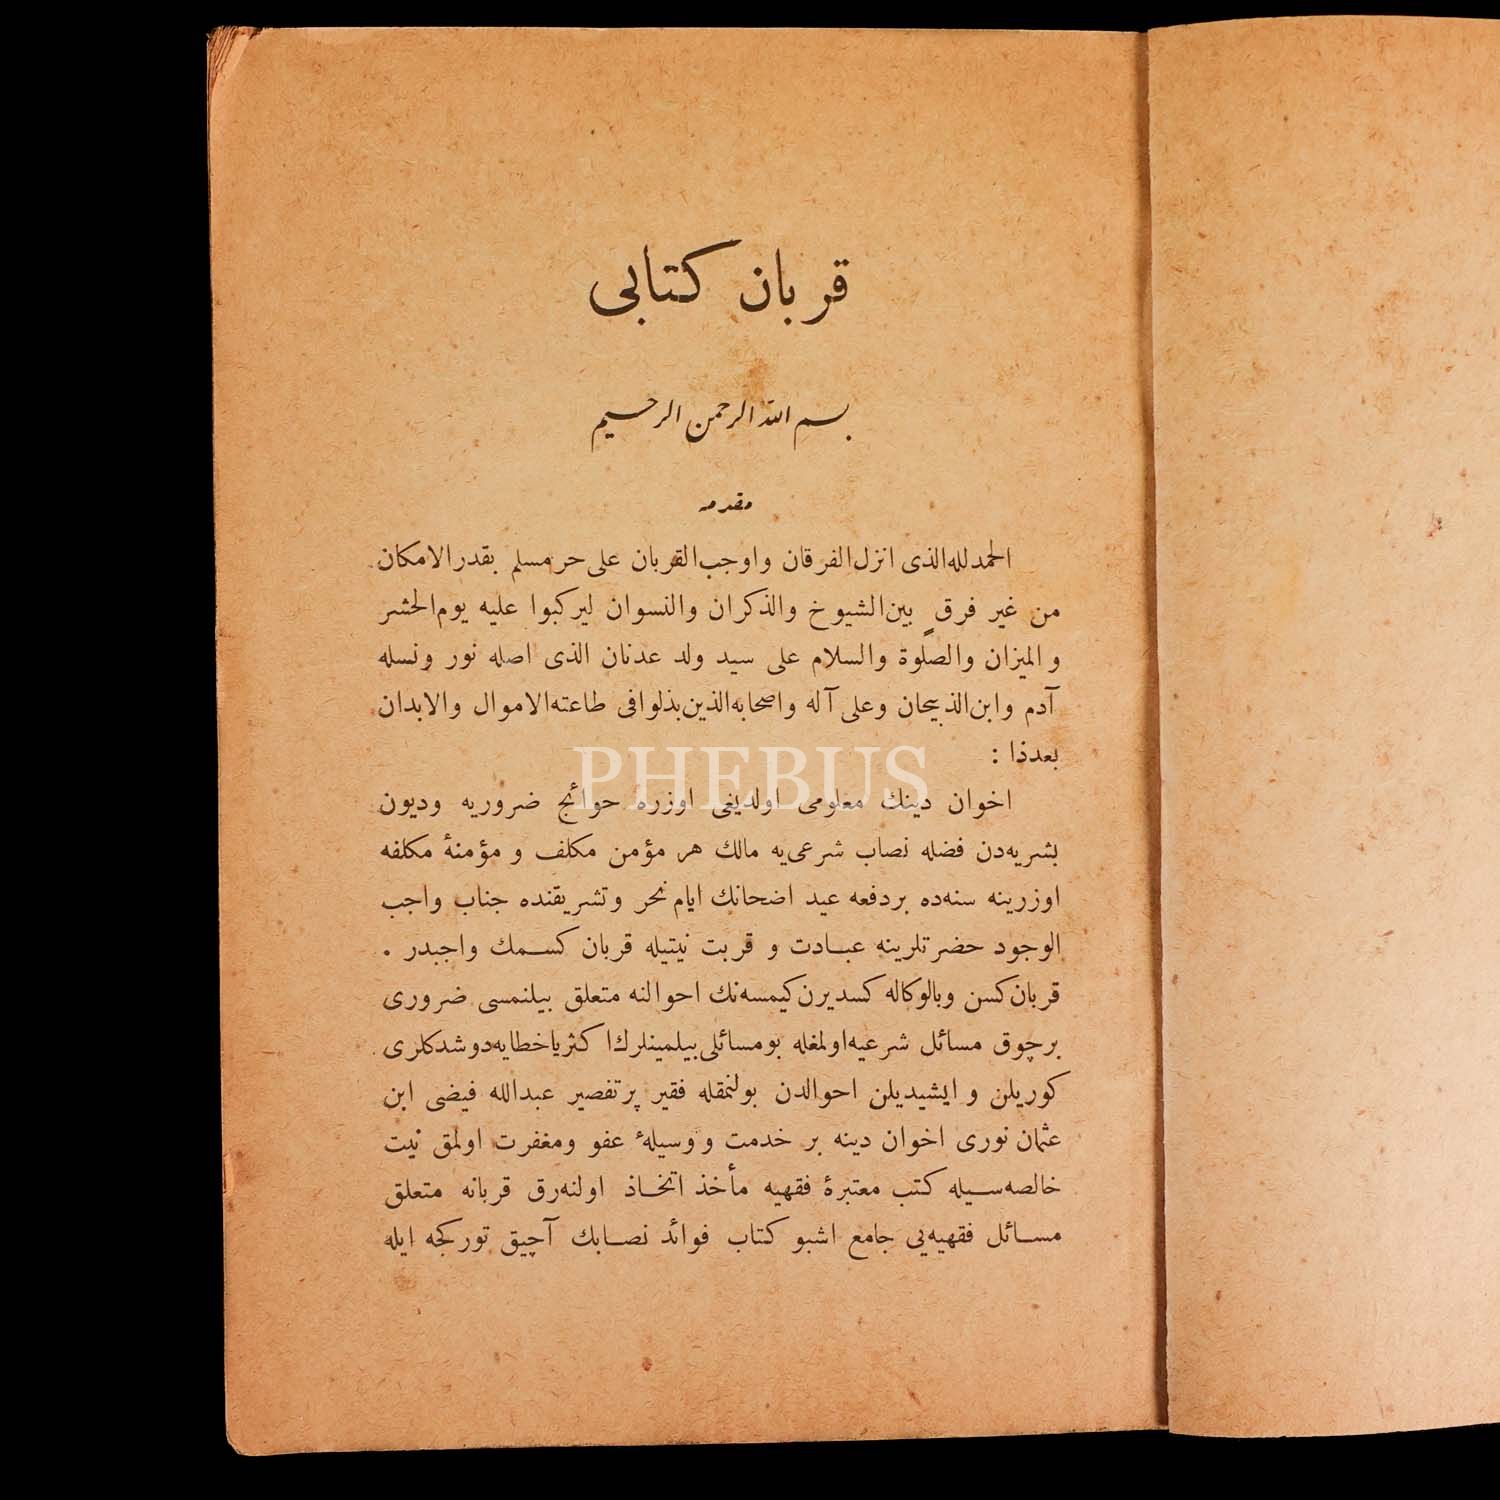 قربان كتابى
بسم الله الرحمن الرحيم
مقدمه
الحمدلله الذى انزل الفرقان واوجب القربان على حر مسلم بقدر الامكان
من غير فرقٍ بين الشيوخ والذكران والنسوان ليركبوا عليه يوم الحشر
و الميزان والصلوة والسلام على سيد ولد عدنان الذى اصله نور ونسله
آدم وابن الذبيحان وعلى آله واصحابه الذين بذلوا فى طاعته الاموال والابدان
بعدذا :
اخوان دينك معلومى اولديغى اوزره حوائج ضروريه وديون
بشريه‌دن فضله نصاب شرعى‌يه مالك هر مؤمن مكلف و مؤمنۀ مكلفه
اوزرينه سنه‌ده بردفعه عيد اضحانك ايام نحر وتشريقنده جناب واجب
الوجود حضرتلرينه عبادت و قربت نيتيله قربان كسمك واجبدر .
قربان كسن وبالوكاله كسديرن كيمسه‌نك احوالنه متعلق بيلنمسى ضرورى
برچوق مسائل شرعيه اولمغله بومسائلى بيلمينلرك اكثريا خطايه دوشدكلرى
كوريلن و ايشيديلن احوالدن بولنمقله فقير پرتقصير عبدالله فيضى ابن
عثمان نورى اخوان دينه بر خدمت و وسيلۀ عفو ومغفرت اولمق نيت
خالصه‌سيله كتب معتبرۀ فقهيه مأخذ اتخاذ اولنه‌رق قربانه متعلق
مسائل فقهيه‌يى جامع اشبو كتاب فوائد نصابك آچيق توركجه ايله
PHEBUS